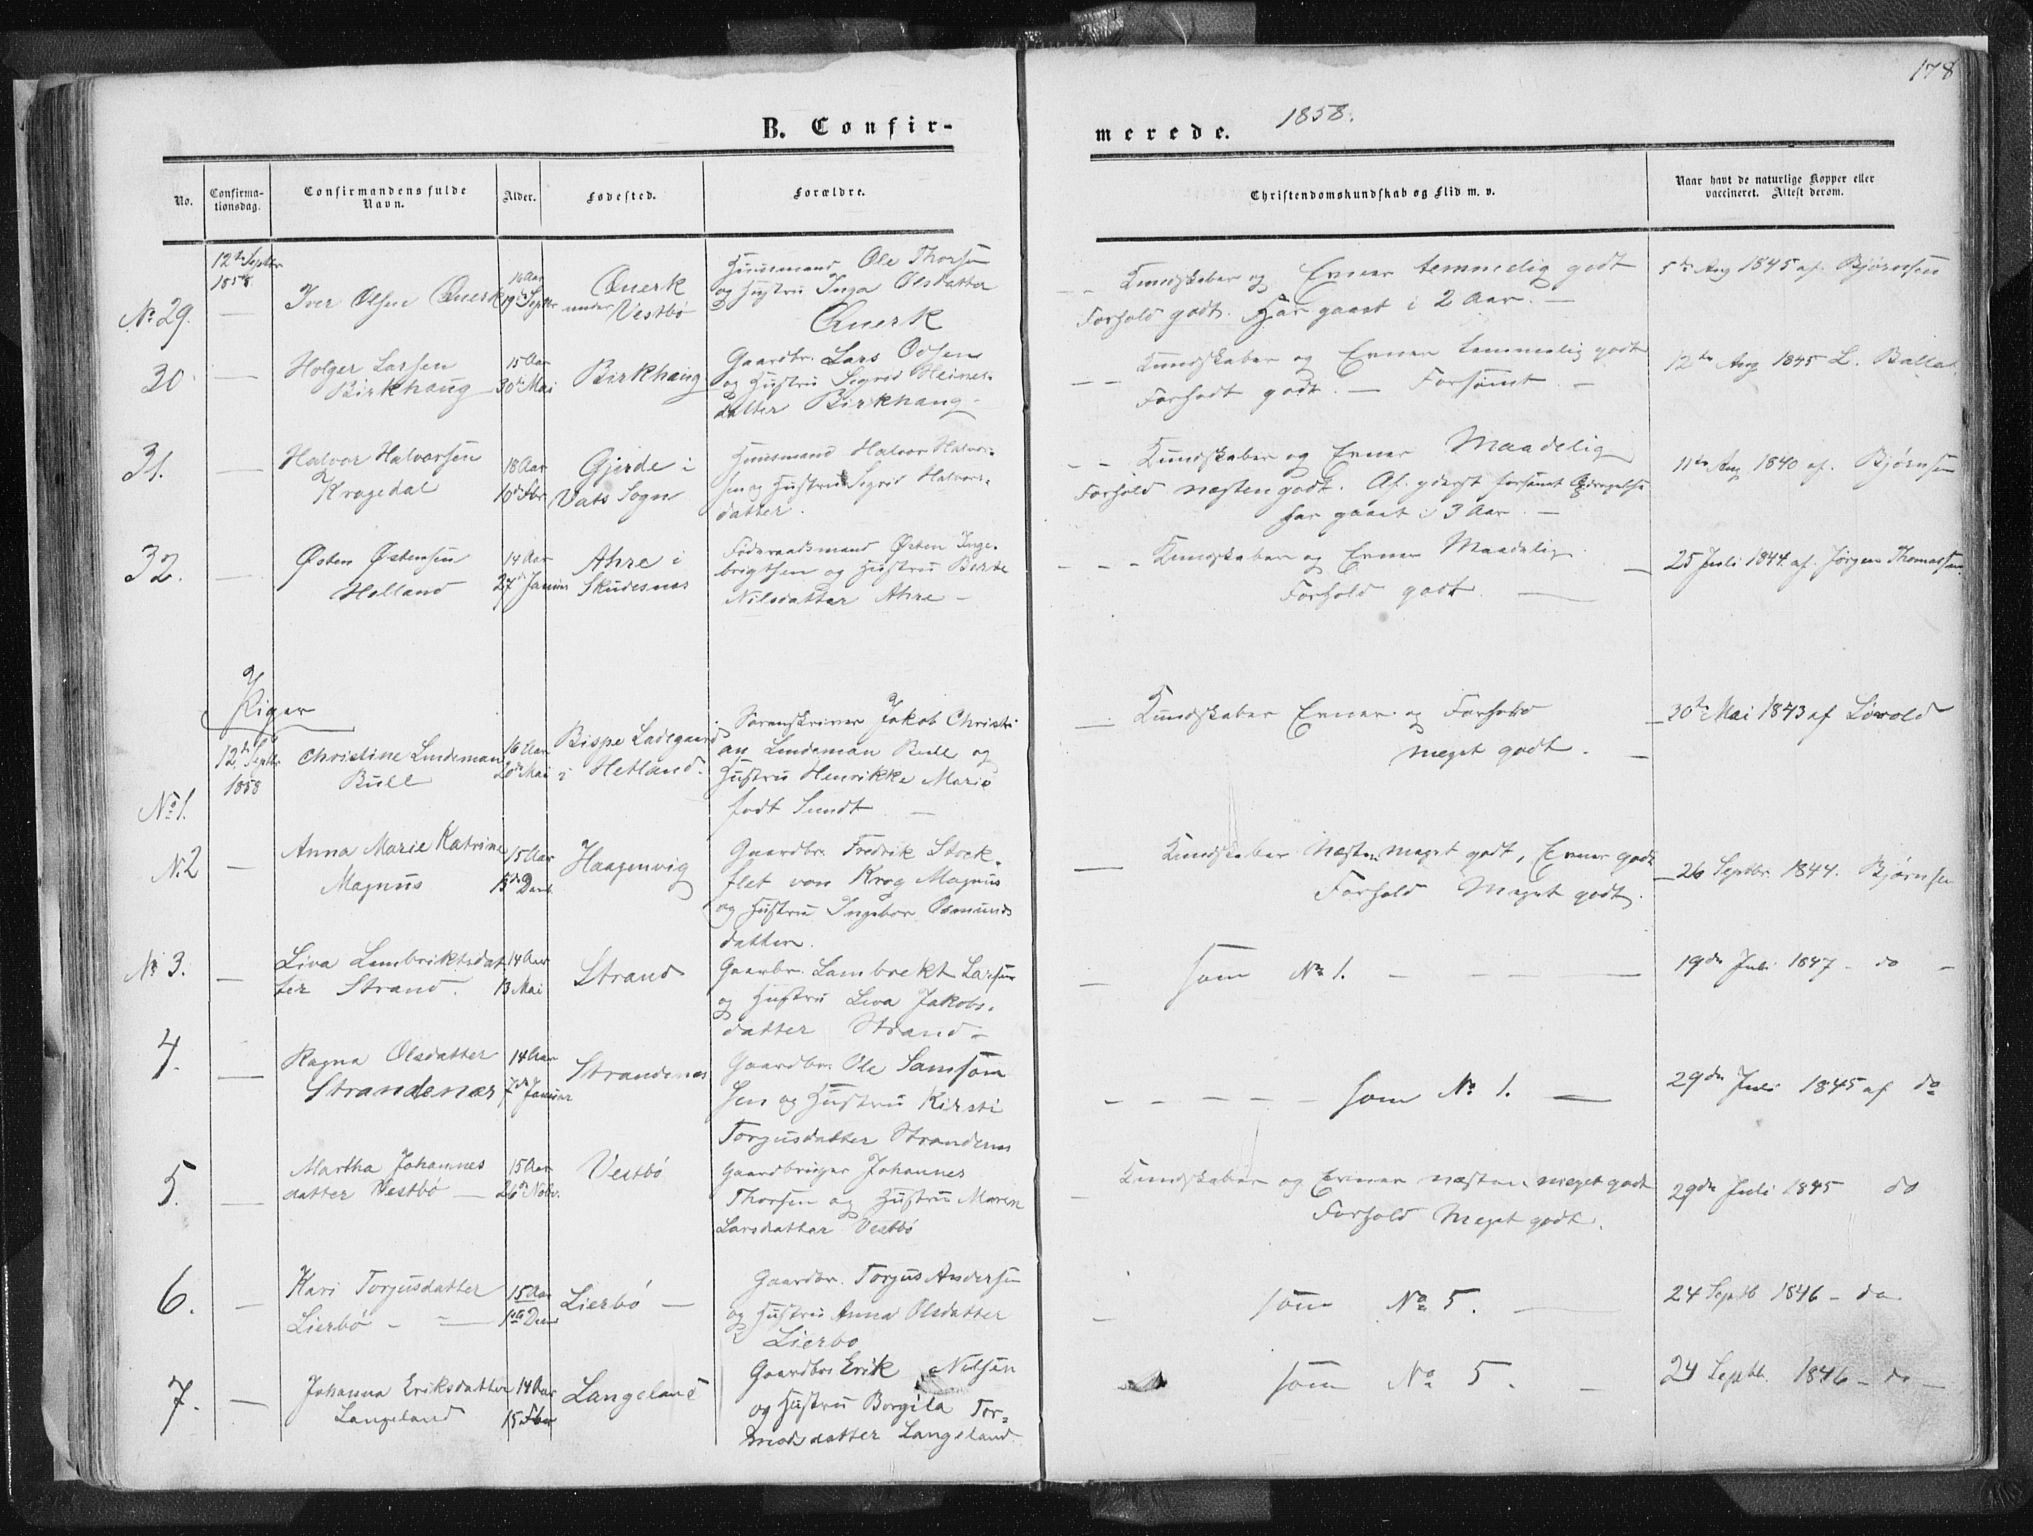 178
B. Confir-
merede.
1858.
No.
Confirma-
tionsdag.
Confirmandens fulde
Navn.
Alder.
Fødested.
Forældre.
Christendomskundskab og Flid m. v.
Naar havt de naturlige Kopper eller
vaccineret. Attest derom.
12te Septbr
1858.
No 29.
Iver Olsen
16 Aar
19de Septbr
under Vestbö
Huusmand Ole Thorsen
og Hustru Inga Olsdatter
Kundskaber og Evner temmelig godt
Forhold godt. Har gaaet i 2 Aar. —
5te Aug 1845 af Bjørnsen
30
—
Holger Larsen
Birkhaug
15 Aar
30de Mai
Birkhaug
Gaardbr. Lars
og Hustru Sigrid Heines-
datter Birkhaug
Kundskaber og Evner temmelig godt
Forhold godt. — Forsömt —
12te Aug 1845 L. Balla
31.
—
Halvor Halvorsen
Kragedal
18 Aar
10de Fbr
Gjerde i
Vats Sogn
Huusmand Halvor Halvor-
sen og Hustru Sigrid Halvors-
datter.
Kundskaber og Evner Maadelig
Forhold næsten godt. Af yderst forsömt Opdragelse
har gaaet i 3 Aar. —
11te Aug 1840 af Bjørnsen
32.
—
Østen Østensen
Holland
14 Aar
27de Januar
Ahre i
Skudesnes
Föderaadsmand Østen Inge-
brigtsen og Hustru Berte
Nilsdatter Ahre —
Kundskaber og Evner Maadelig
Forhold godt. —
25 Juli 1844 af Jørgen Thomassen
Piger
No 1.
12te Septbr
1858
Christine Lindeman
Bull
16 Aar
20de Mai
Bispe Ladegaard
i Hetland.
Sorenskriver Jakob Christi-
an Lindeman Bull og
Hustru Henrikke Marie
fodt Sundt —
Kundskaber Evner og Forhold
meget godt.
30te Mai 1843 af Lövold
N. 2
—
Anna Marie Katrine
Magnus
15 Aar
Haagenvig
Gaardbr. Fredrik Stock-
flet von Krog Magnus
og Hustru Ingebor Osmunds
datter.
Kundskaber Næsten meget godt, Evner godt
Forhold Meget godt.
26 Septbr. 1844. Bjørnsen
No 3.
—
Liva Lambriktsdat
ter Strand.
14 Aar
13 Mai
Strand
Gaarbr. Lambrekt Larsen
og Hustru Liva Jakobs-
datter Strand —
som No 1. —
19de Juli 1847 - do -
4.
—
Ragna Olsdatter
Strandenæs
14 Aar
7de Januar
Strandenes
Gaardbr. Ole Samson
sen og Hustru Kirsti
Torgusdatter Strandenes
som No 1. —
29de Juli 1845 af do
5.
—
Martha Johannes
datter Vestbö —
15 Aar
26de Novb.
Vestbö
Gaardbruger Johannes
Thorsen og Hustru Maren
Larsdatter Vestbö
Kundskaber og Evner næsten meget godt
Forhold Meget godt.
29de Juli 1845 do
6.
—
Kari Torgusdatter
Lierbö — —
15 Aar
Lierbö —
Gaardbr. Torgus Andersen
og Hustru Anna Olsdatter
Lierbo
som No 5. —
24 Septb 1846 - do
7.
—
Johanna Eriksdatter
Langeland
14 Aar
15 Fbr
Langeland
Gaardbr Erik Nilsen
og Hustru Borgila Tor-
modsdatter Langeland
som No 5. —
24 Septb. 1846 - do -